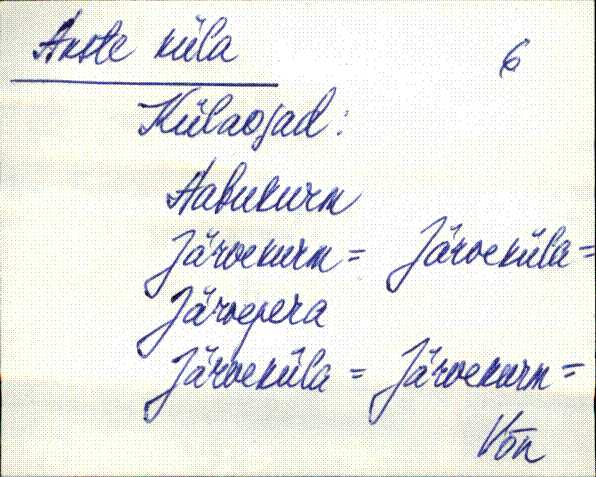 Akste küla
6
Külaosad:
Aabukurm
Järvekurm = Järveküla =
Järvepera
Järveküla = Järvekurm =
Võn